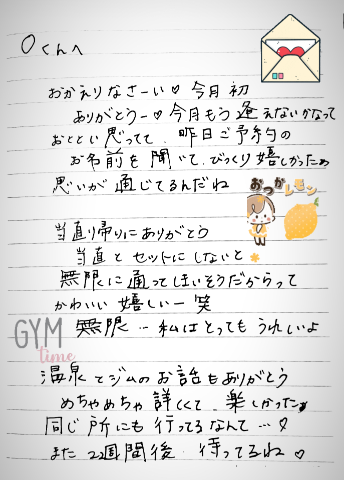 〇くんへ
おかえりなさーい♡ 今月初
ありがとうー♡ 今月もう逢えないかなって
おととい思ってて、昨日ご予約の
お名前を聞いて、びっくり嬉しかったぁ
思いが通じてるんだね
おつかレモン
当直り帰りにありがとう
当直とセットにしないと
無限に通ってしまいそうだからって
かわいい 嬉しいー笑
無限… 私はとってもうれしいよ
GYM
time
温泉とジムのお話もありがとう
めちゃめちゃ詳しくて、楽しかったぁ
同じ所にも行ってるなんて…♡
また2週間後 待ってるね♡